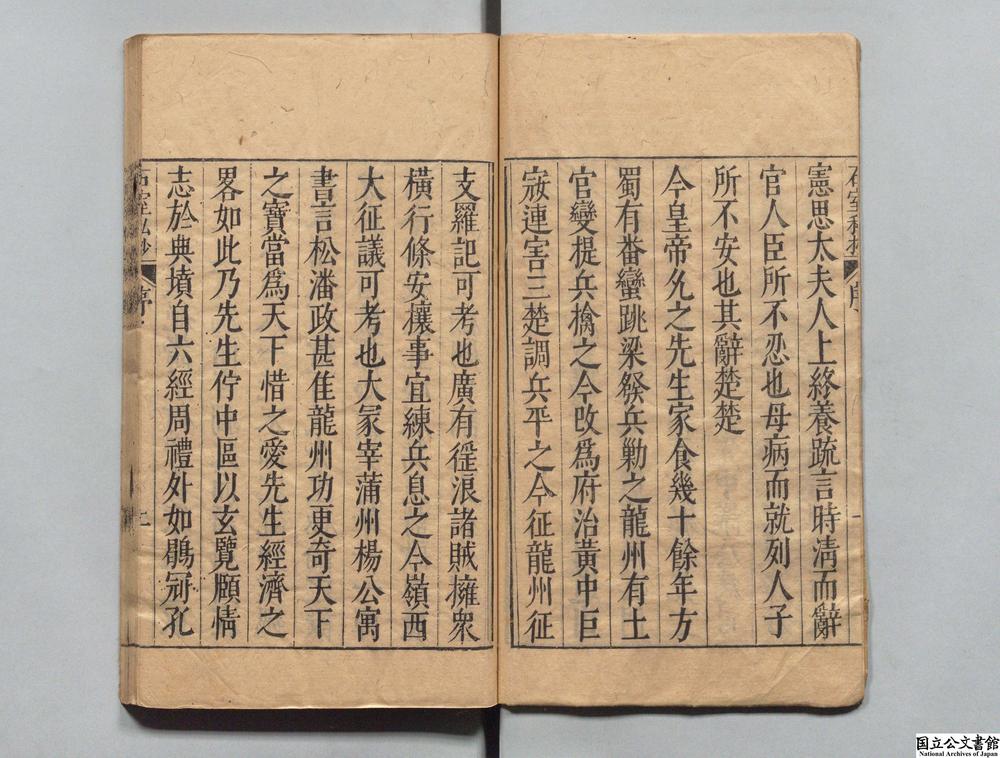 石室私抄
序
一
憲思太夫人上終養疏言時淸而辭
官人臣所不忍也母病而就列人子
所不安也其辭楚楚
今皇帝允之先生家食幾十餘年方
蜀有畨蠻跳梁發兵勦之龍州有土
官變提兵擒之今改爲府治黃中巨
㓂連害三楚調兵平之今征龍州征
支羅記可考也廣有徭浪諸賊擁衆
橫行條安攘事宜練兵息之今嶺西
大征議可考也大冡宰蒲州楊公寓
書言松潘政甚隹龍州功更奇天下
之寶當爲天下惜之愛先生經濟之
畧如此乃先生佇中區以玄覽頤情
志於典墳自六經周禮外如鶡冠孔
石室私抄
序
国立公文書館
National Archives of Japan